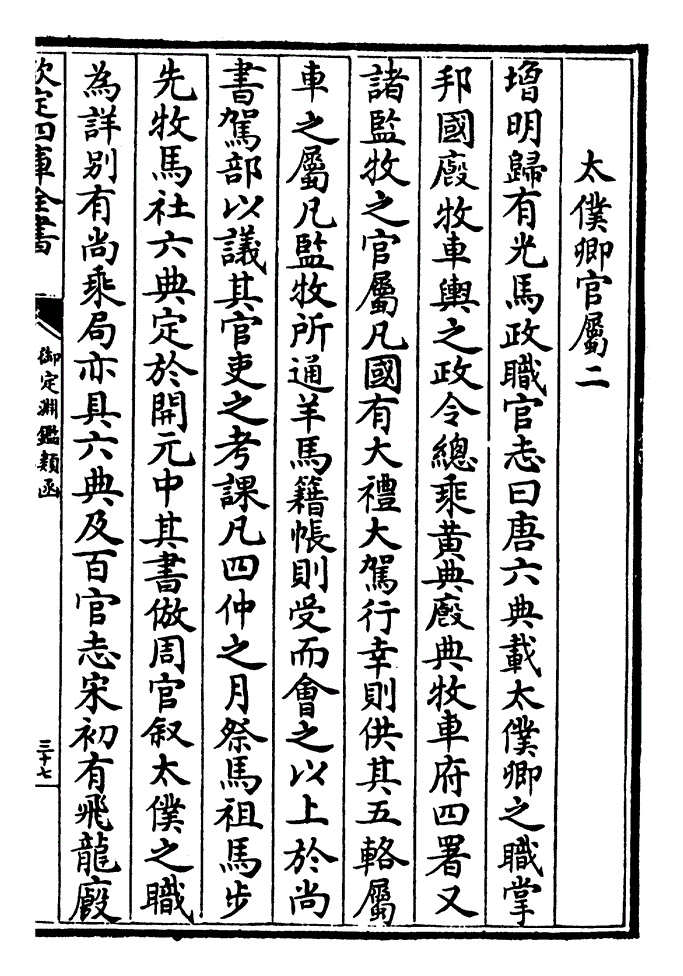 太僕卿官屬二
增明歸有光馬政職官志曰唐六典載太僕卿之職掌
邦國廄牧車輿之政令總乘黃典廄典牧車府四署又
諸監牧之官屬凡國有大禮大駕行幸則供其五輅屬
車之屬凡監牧所通羊馬籍帳則受而會之以上於尚
書駕部以議其官吏之考課凡四仲之月祭馬祖馬步
先牧馬社六典定於開元中其書倣周官叙太僕之職
為詳別有尚乘局亦具六典及百官志宋初有飛龍廄
欽定四庫全書
御定淵鑑類函
三十七